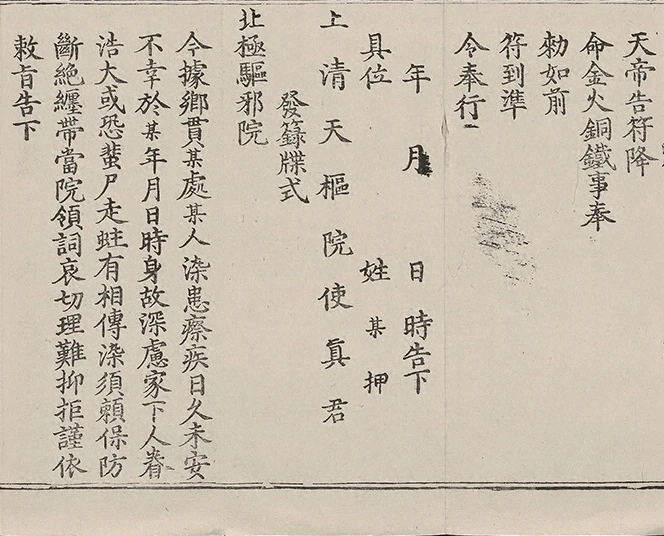 天帝告符降
命金火銅鐵事奉
勑如前
符到準
令奉行
年　月　日　時告下
具位　姓某押
上清天樞院使眞君
發籙牒式
北極驅邪院
今據鄉貫某處某人染患瘵疾日久未安
不幸於某年月日時身故深慮家下人眷
浩大或恐蜚尸走蛀有相傳染須賴保防
斷絕纏帶當院領詞哀切理難抑拒謹依
敕旨告下